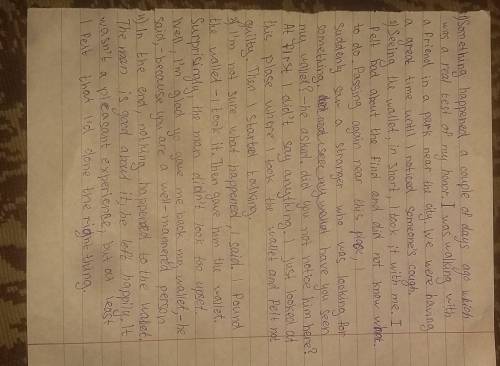 1) Something happened a couple of days ago which
was a real test of my honor. I was walking with
a friend in a park near the city. We were having
a great time until I noticed someone's cough.
2) Seeing the wallet, in short, I took it with me. I
felt bad about the find and did not know what
to do. Passing again near this place, I
suddenly saw a stranger who was looking for
something. have you seen
my wallet? - he asked, did you not notice him here?
At first I didn't say anything, I just looked at
this place where I took the wallet and felt not
guilty. Then I started talking
3) I'm not sure what happened, I said. I found
the wallet - I took it. Then gave him the wallet.
Surprisingly, the man didn't look too upset.
Well, I'm glad you gave me back my wallet, - he
said, - because you are a well-mannered person
4) In the end, nothing happened to the wallet
The man is good about it, he left happily. It
wasn't a pleasant experience, but at least
I felt that I'd done the right thing.